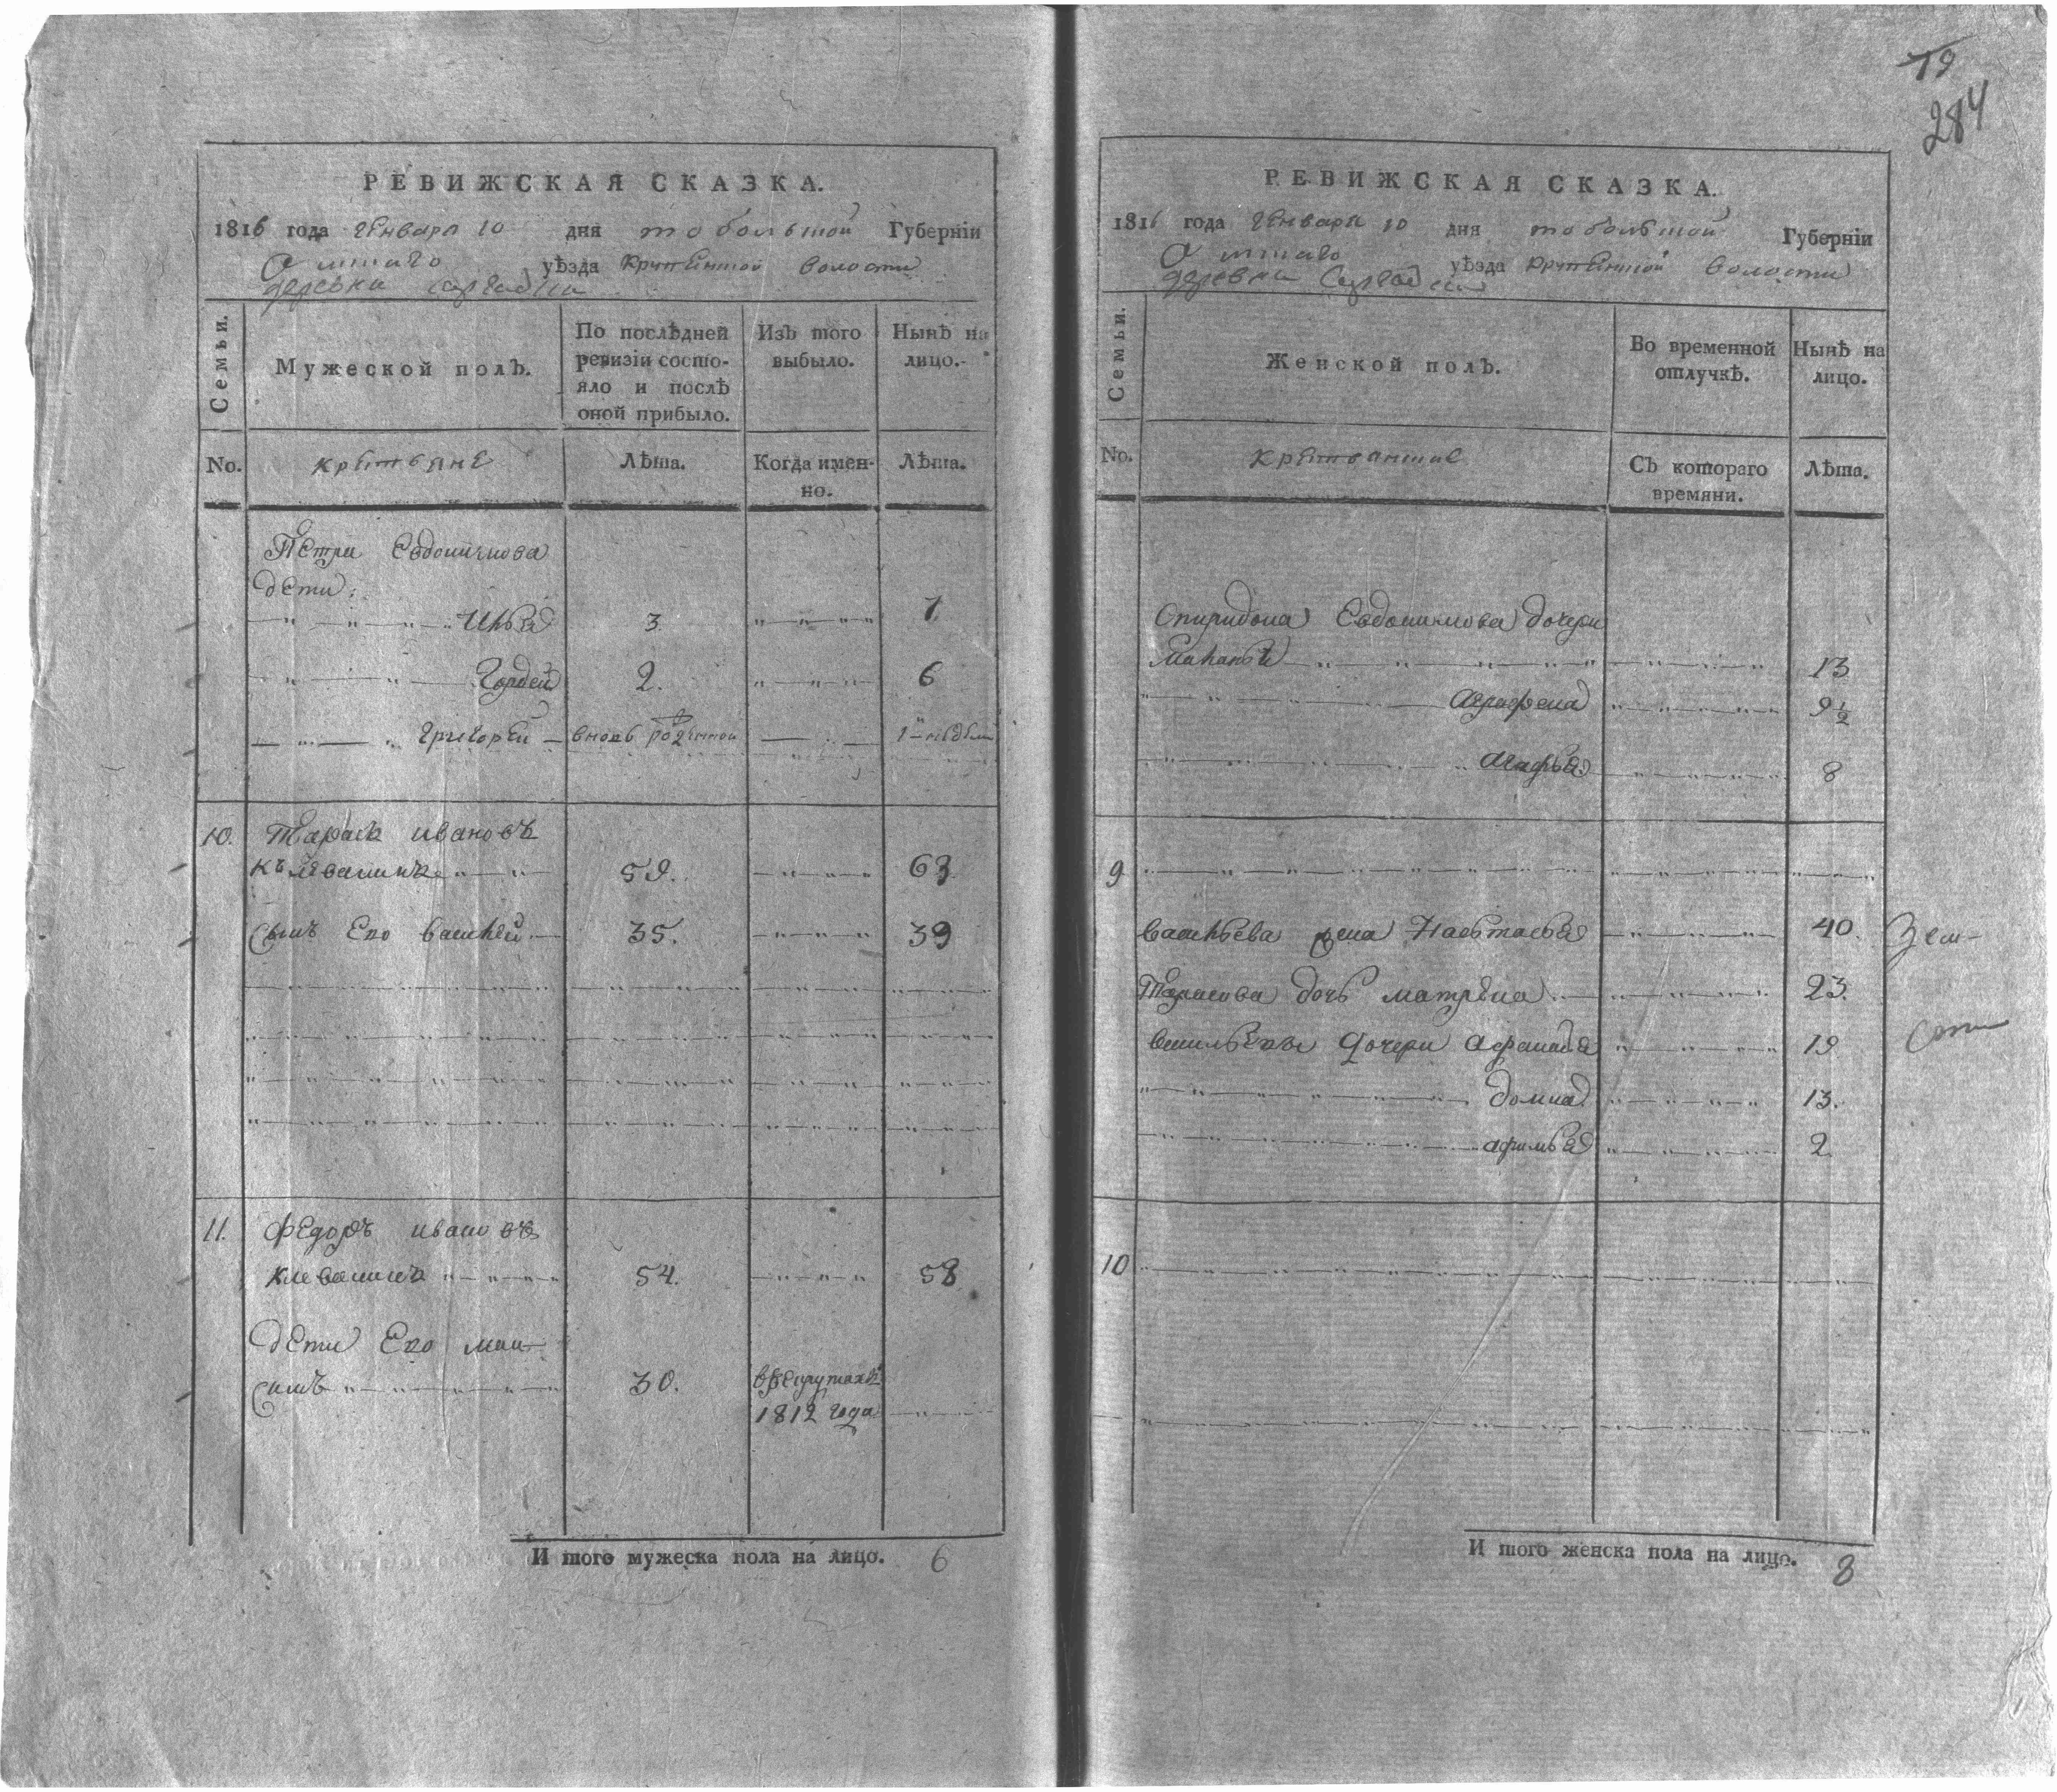 19
284
РЕВИЖСКАЯ СКАЗКА.
1816 года Генваря 10 дня тобольской Губерніи
Омскаго уѣзда Крутинской волости
деревни
Семьи.
Мужеской полъ.
По послѣдней ревизіи состо-
яло и послѣ
оной прибыло.
Изъ того
выбыло.
Нынѣ на
лицо.
No.
крестьяне
Лѣта.
Когда имен-
но.
Лѣта.
Петра Евдокимова
дети:
Илья 3 7
Гордей 2. 6
Григорей вновь рожденной 1 неделя
10. Тарасъ ивановъ
Клевакинъ 59. 63
Сынъ Его василей 35. 39
11. Федоръ ивановъ
Клевакинъ 54. 58
дети Его мак-
симъ 30. в рекрутахъ
1812 года
И того мужеска пола на лицо. 6
РЕВИЖСКАЯ СКАЗКА.
1816 года Генваря 10 дня тобольской Губерніи
Омскаго уѣзда Крутинской волости
деревни
Семьи.
Женской полъ.
Во временной
отлучкѣ.
Нынѣ на
лицо.
No.
крестьянские
Съ котораго
времяни.
Лѣта.
Спиридона Евдокимова дочери
Маланья 13
Аграфена 9 1/2
Агафья 8
9
васильева жена Настасья 40.
Тарасова дочь матрена 23.
васильевы дочери 19
домна 13.
афимья 2
10
И того женска пола на лицо. 8